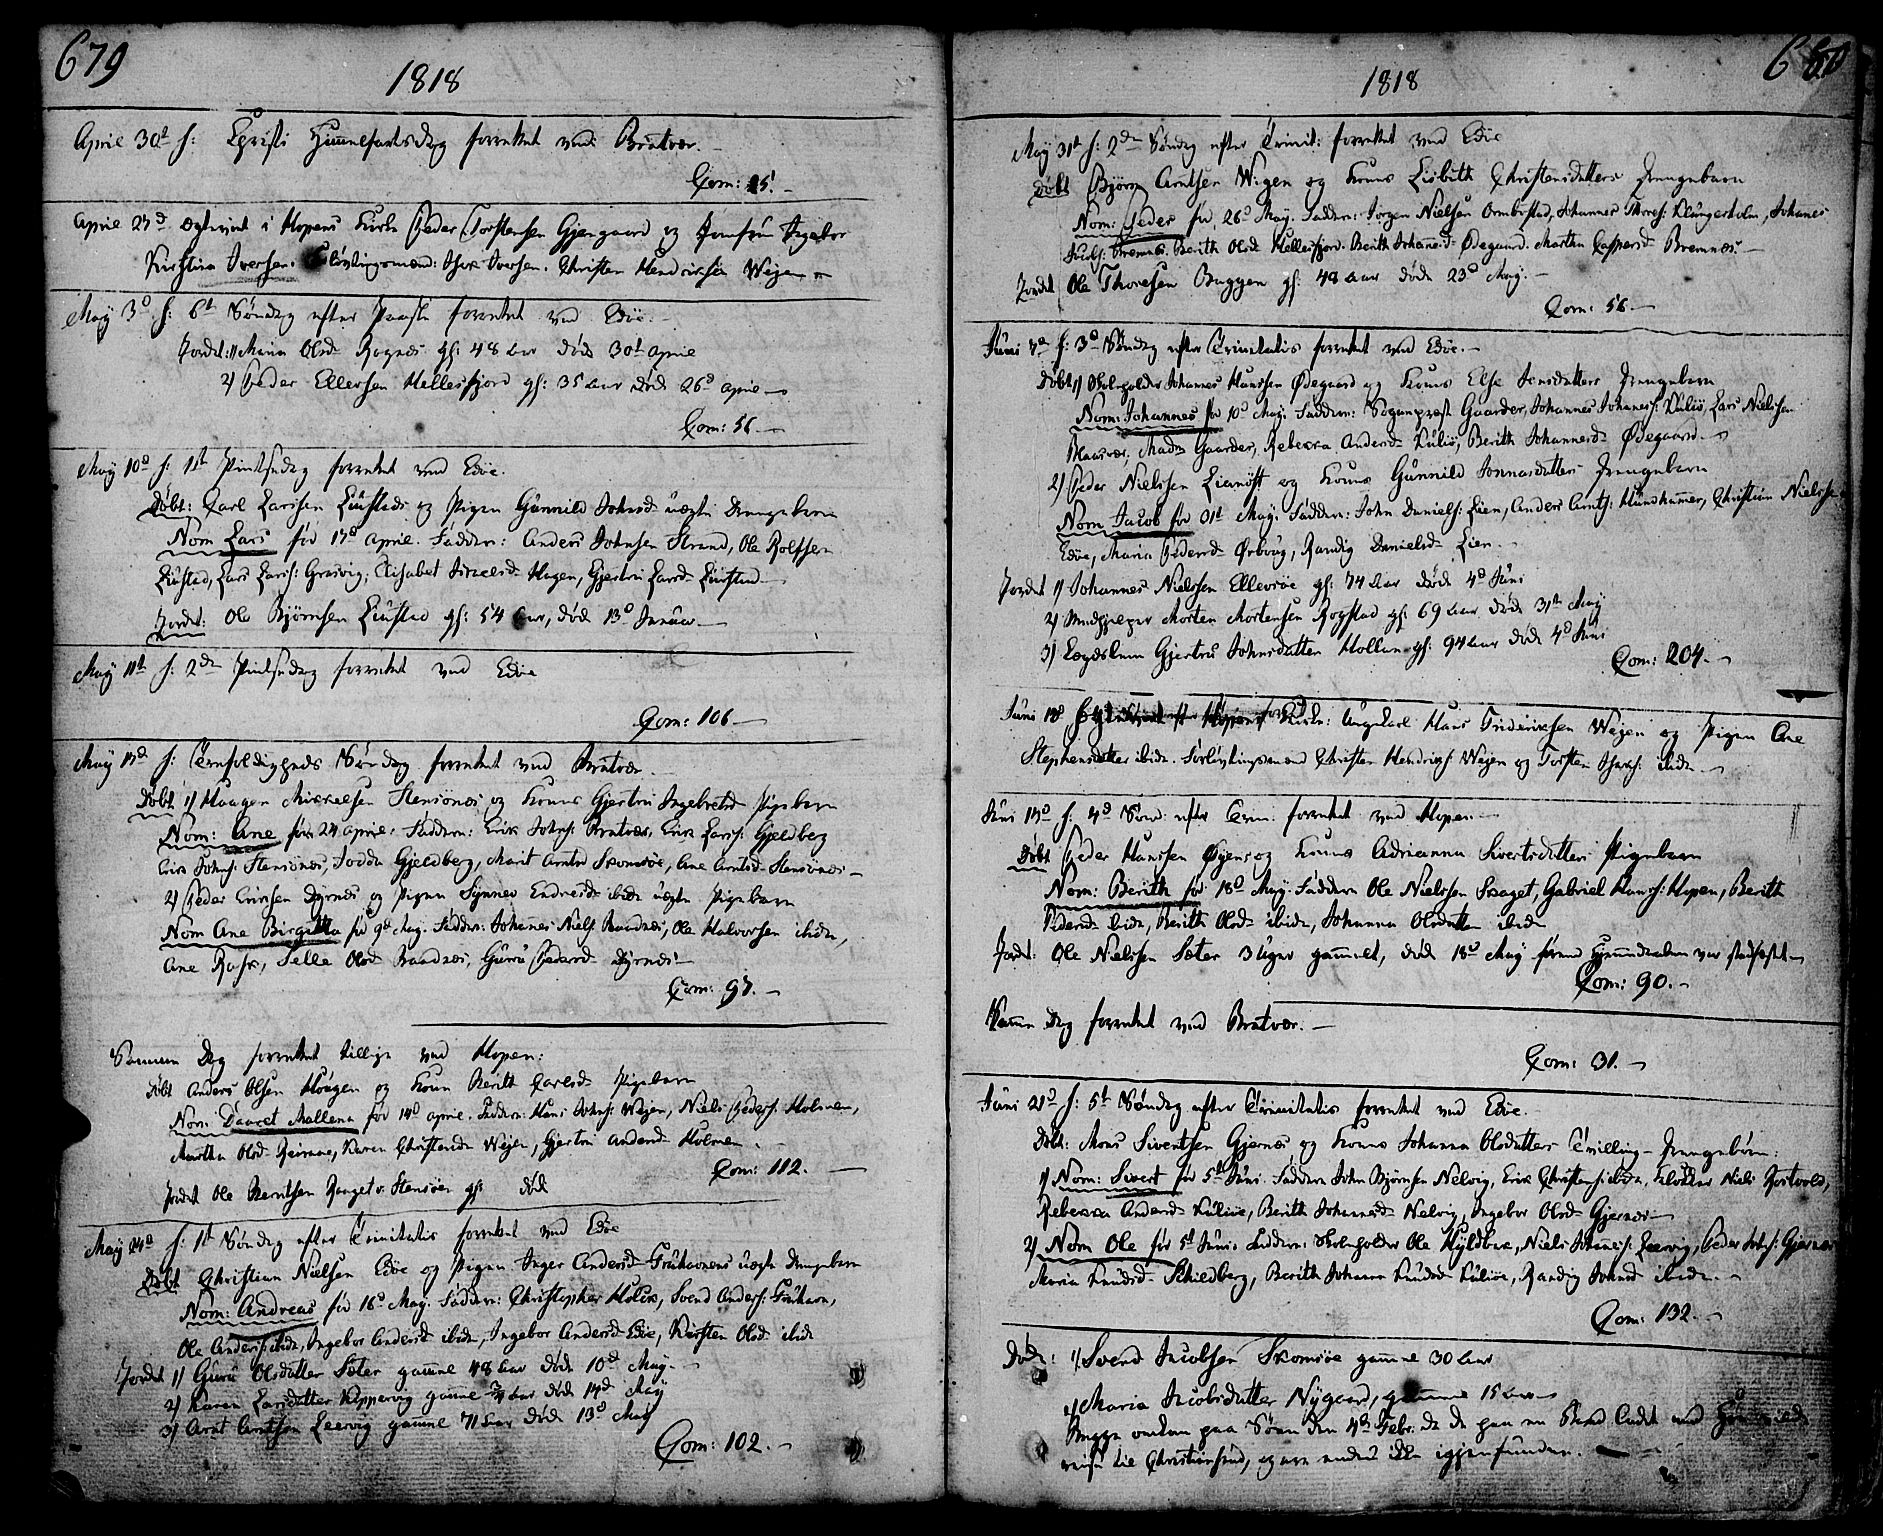 679
1818
Aprile 30t f: Christi Himmelfartsdag forrettet ved Bratvær.
Com: 25.
Aprile 23d Egteviet i Hopens Kirke Peder Torstensen Gjengaard og Jomfrue Ingebor
Kirstina Iversen. Forlovingsmænd: Iver Iversen. Christen Hendriksen Wejen
May 3d f: 6t Søndag efter Paaske forrettet ved Edøe.
Jordet: 1) Maria Olsd Rognæs gl: 48 aar døde 30t Aprile
2) Peder Ellevsen Hellesfjord gl: 35 aar døde 26d Aprile
Com: 56.
May 10d f: 1st Pintsedag forrettet ved Edøe.
Døbt: Carl Larssen Liustad og Pigen Gunnild Johnsd uægte Drengebarn
Nom Lars før 17d Aprile. Faddere: Anders Johnsen Strand, Ole Rolfsen
Liustad, Lars Larss: Grasvig, Elisabet Israelsd Hagen, Gjertru Larsd Liustad
Jordet: Ole Bjørnsen Liustad gl: 54 aar, død 13d Januar
May 11t f: 2den Pintsedag forrettet ved Edøe
Com: 106
May 17d f: Trefoldigheds Søndag forrettet ved Bratvær.
Døbt 1) Haagen Mikkelsen Stensønes og Kones Gjertru Ingebretsd Pigebarn
Nom: Ane før 24 Aprile. Faddere: Erik Johns: Bratvær, Erik Larss: Gjeldberg
Erik Johns: Stensønes, Jodde Gjeldberg, Marit Arntsd Skomsøe, Ane Arntsd Stensønes
2) Peder Ericksen Dyrnes og Pigen Synnev Endresd ibide uægte Pigebarn
Nom Ane Birgitta før 9d May. Faddere: Johannes Niels: Raadnæs, Ole Halvorsen ibide,
Ane Rosk, Selle Olsd Raadnæs, Guru Pedersd Dyrnes
Com: 97.
Samme Dag forrettet tillige ved Hopen:
Døbt Anders Olsen Hougen og Kone Berith Carlsd Pigebarn
Nom: Daaret Mallena før 14d Aprile. Faddere: Hans Johns: Wejen, Niels Peders: Holmen,
Martha Olsd Reirane, Karen Christensd Wejen, Gjertru Andersd Holmen
Com: 112.
Jordet Ole Berntsen Ranget v. Stensøen gl: død
May 24d f: 1st Søndag efter Trinitatis forrettet ved Edøe
Døbt Christian Nielsen Edøe og Pigen Inger Andersd Gruhavens uægte Drengebarn
Nom: Andreas før 16d May. Faddere: Christopher Holck, Svend Anders: Gruhavn,
Ole Anders: ibide, Ingebor Andersd ibide, Ingebor Andersd Edøe, Kirsten Olsd ibide
Jordet 1) Guru Olsdatter Sæter gamle 48 aar døde 10d May.
2) Karen Larsdatter Kippervig gamle ¾ aar død 14d May
3) Arnt Arntsen Leervig gamle 71 aar død 13d May
Com: 102.
680
1818
May 31t f: 2den Søndag efter Trinit: forrettet ved Edøe
Døbt Bjørn Arntsen Wigen og Kones Lisbeth Christensdatters Drengebarn
Nom: Peder før 26d May. Faddere: Jørgen Nielsen Ormbostad, Johannes Thores: Klungerholm, Johanes
Jacobs: Bremnes. Berith Olsd Hellesfjord. Berith Johannesd Ødegaard. Martha Caspersd Bremnæs.
Jordet Ole Thoresen Buggen gl: 48 aar døde 23d May.
Com: 56.
Juni 7d f: 3d Søndag efter Trinitatis forrettet ved Edøe.
Døbt 1) Skoleholder Johannes Hanssen Ødegaard og Kones Else Jensdatters Drengebarn
Nom: Johannes før 10d May. Faddere: Sognepræst Gaarder, Johannes Johaness: Kuløi, Lars Nielssen
Maasvær, Mad: Gaarder, Rebekka Andersd Kuløi, Berith Johannesd Ødegaard.
2) Peder Nielssen Lianøst og Kones Gunnild Jonnasdatters Drengebarn
Nom Jacob før 31t May. Faddere: John Daniels: Lien, Anders Arnts: Hundhammer, Christian Nielssen
Edøe, Maria Pedersd Ørbaug, Randig Danielsd Lien
Jordet 1) Johannes Nielssen Ellevsøe gl: 74 aar døde 4d Juni
2) Medhjelper Morten Mortensen Rogstad gl: 69 aar døde 31th May
3) Lægdslem Gjertru Johnsdatter Hollan gl: 94 aar døde 4d Juni
Com: 204.
Juni 18d Egteviet Hopens Kirke: Ungkarl Hans Friderichsen Wejen og Pigen Ane
Stephensdatter ibide. Forlovingsmænd Christen Hendriks: Wejen og Torsten ibide
Juni 14d f: 4d Sønd efter Trin: forrettet ved Hopen
Døbt Peder Hanssen Øyens og Kones Adrianna Sivertsdatters Pigebarn
Nom: Berith før 18d May. Faddere Ole Nielssen Skaget, Gabriel Hanss: Hopen, Berith
Pedersd ibide, Berith Olsd ibide, Johanna Olsdatter ibide
Jordet: Ole Nielssen Sæter 3 uger gammelt, død 18d May førend Hjemmedaaben var stadfæstet
Com: 90.
Samme Dag forrettet ved Bratvær.
Com: 31.
Juni 21d f: 5t Søndag efter Trinitatis forrettet ved Edøe.
Døbt: Mons Siventsen Gjernes og Kones Johanna Olsdatters Tvilling-Drengebørn:
1) Nom: Sivert før 5th Juni. Faddere John Bjørnsen Nelvig, Erik Christens: ibide, Klokker Niels Rostvold,
Rebekka Andersd Kuløie, Berith Johannesd Nelvig, Ingebor Olsd Gjernes
2) Nom Ole før 5t Juni. Faddere: Skoleholder Ole Hyldbak, Niels Johannes: Leervig, Peder Johs: Gjernes
Maria Knudsd Schiedberg, Berith Johanna Knudsd Kuløie, Randig Johnsd ibide.
Com: 132.
Døde: 1) Svend Jacobsen Skomsøe gamme 30 aar
2) Maria Jacobsdatter Nygaard, gamme 15 aar
Begge omkom paa Søen den 4de Febr: da de paa en Baad ladet med
reise til Christiansund, og ere endnu ikke igjenfunden.